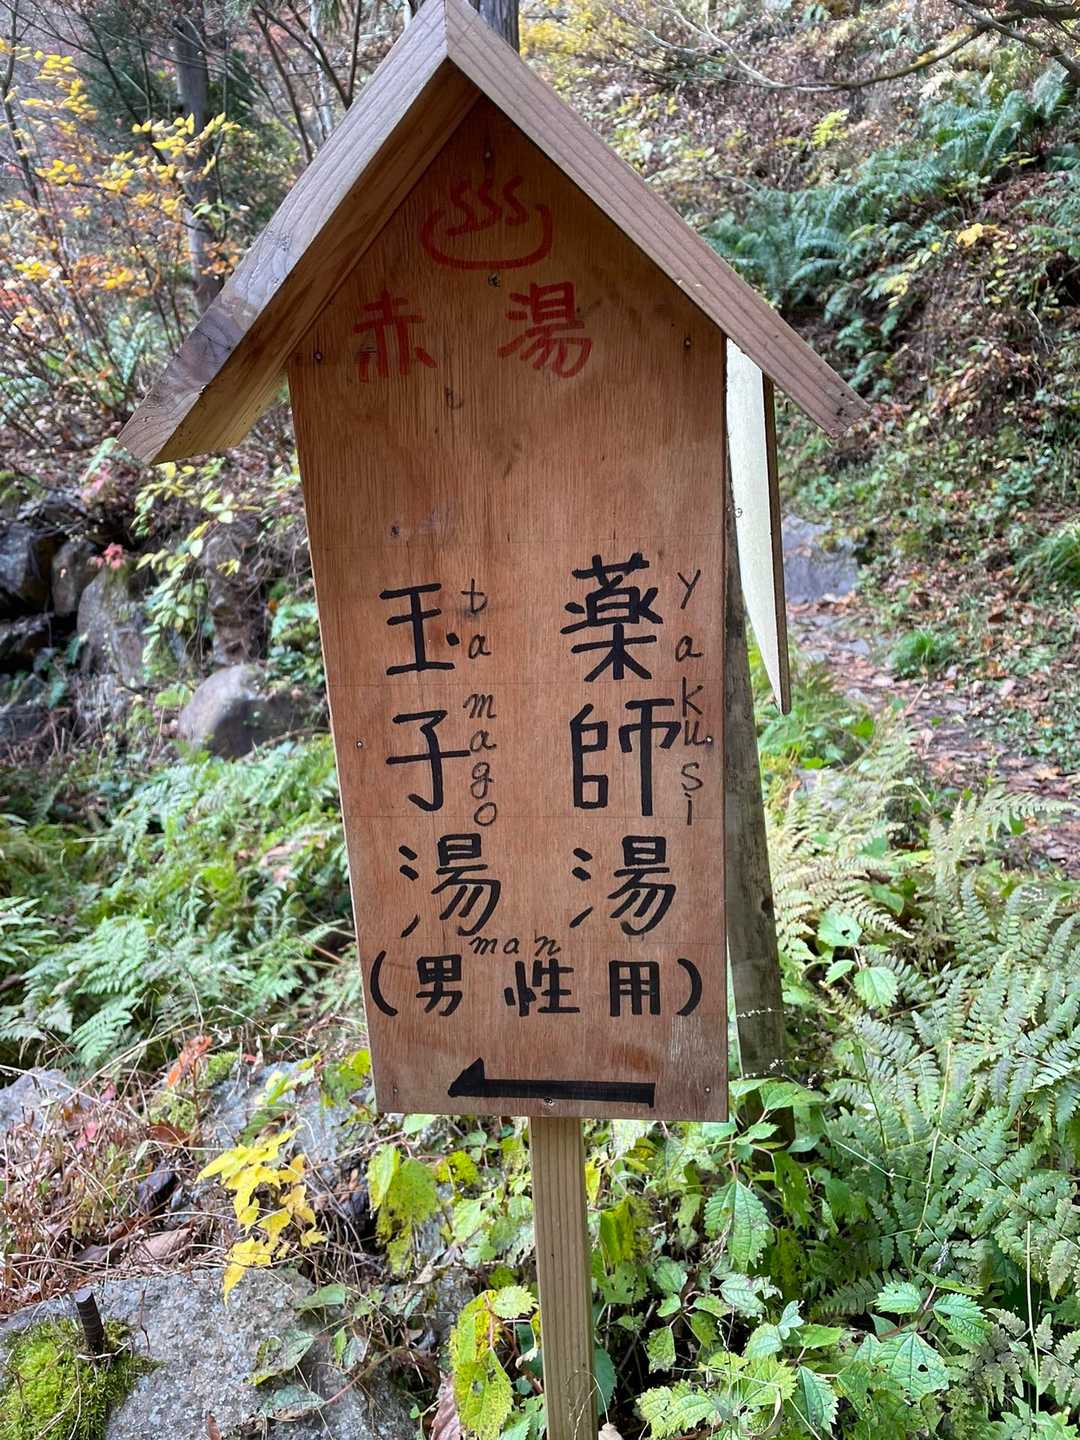 ♨
赤湯
薬師湯
yakusi
玉子湯
tamago
man
(男性用)